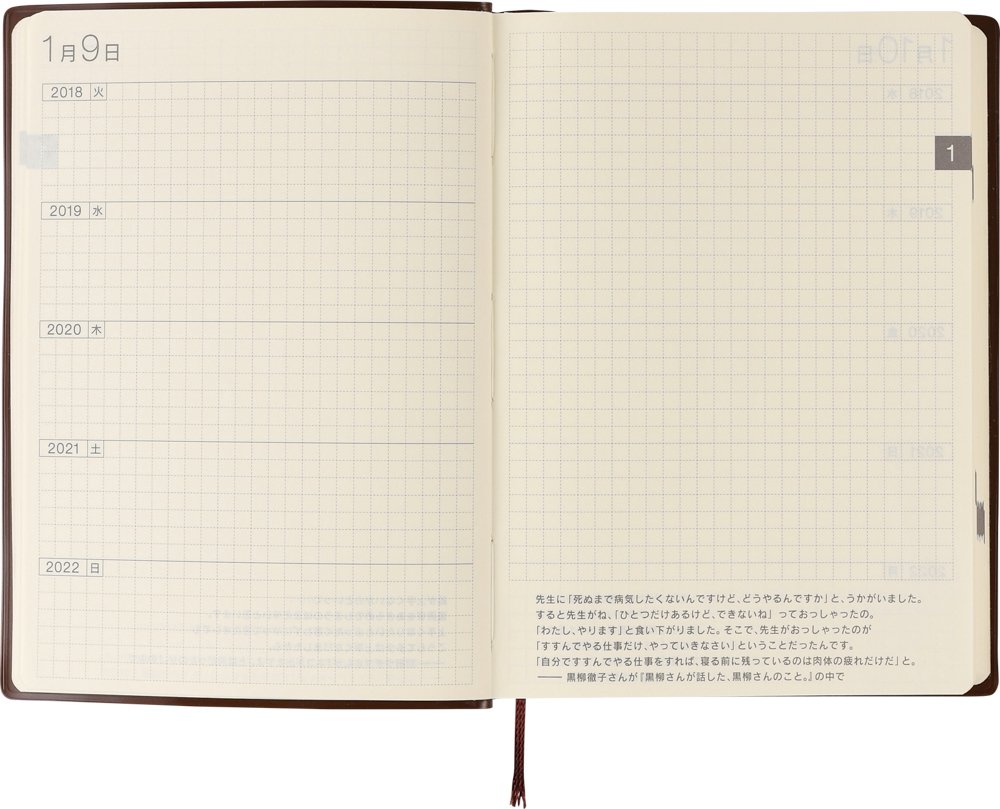 1月9日
2018 火
2019 水
2020 木
2021 土
2022 日
1
先生に「死ぬまで病気したくないんですけど、どうやるんですか」と、うかがいました。
すると先生がね、「ひとつだけあるけど、できないね」っておっしゃったの。
「わたし、やります」と食い下がりました。そこで、先生がおっしゃったのが
「すすんでやる仕事だけ、やっていきなさい」ということだったんです。
「自分ですすんでやる仕事をすれば、寝る前に残っているのは肉体の疲れだけだ」と。
—— 黒柳徹子さんが『黒柳さんが話した、黒柳さんのこと。』の中で